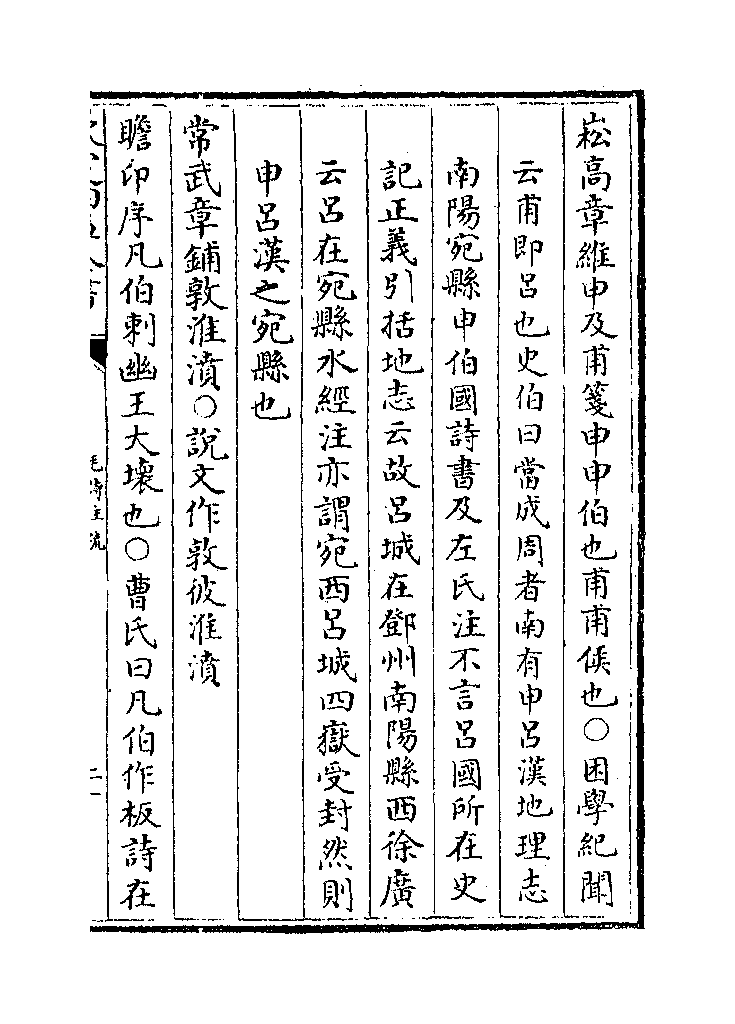 崧高章維申及甫箋申申伯也甫甫侯也○困學紀聞
云甫即呂也史伯曰當成周者南有申呂漢地理志
南陽宛縣申伯國詩書及左氏注不言呂國所在史
記正義引括地志云故呂城在鄧州南陽縣西徐廣
云呂在宛縣水經注亦謂宛西呂城四嶽受封然則
申呂漢之宛縣也
常武章鋪敦淮濆○說文作敦彼淮濆
瞻卬序凡伯刺幽王大壞也○曹氏曰凡伯作板詩在
毛詩注疏